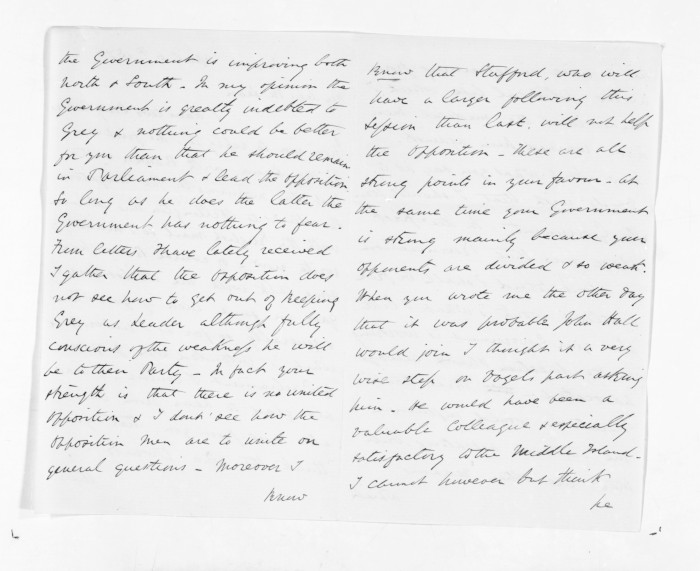 the Government is improving both
North & South - In my opinion the
Government is greatly indebted to
Grey & nothing could be better
for you than that he should remain
in Parliament & lead the opposition
So long as he does the latter the
Government has nothing to fear.
From letters I have lately received
I gather that the opposition does
not see how to get out of keeping
Grey as Leader although fully
conscious of the weakness he will
be to their Party - In fact your
strength is that there is no united
opposition & I dont see how the
opposition men are to unite on
general questions - Moreover I
know
know that Stafford, who will
have a larger following this
Session than last, will not help
the opposition - these are all
strong points in your favour - At
the same time your Government
is strong mainly because your
opponents are divided & so weak.
When you wrote me the other day
that it was probable John Hall
would join I thought it a very
wise step on Vogels part asking
him - He would have been a
valuable Colleague & especially
satisfactory to the Middle Island -
I cannot however but think
he